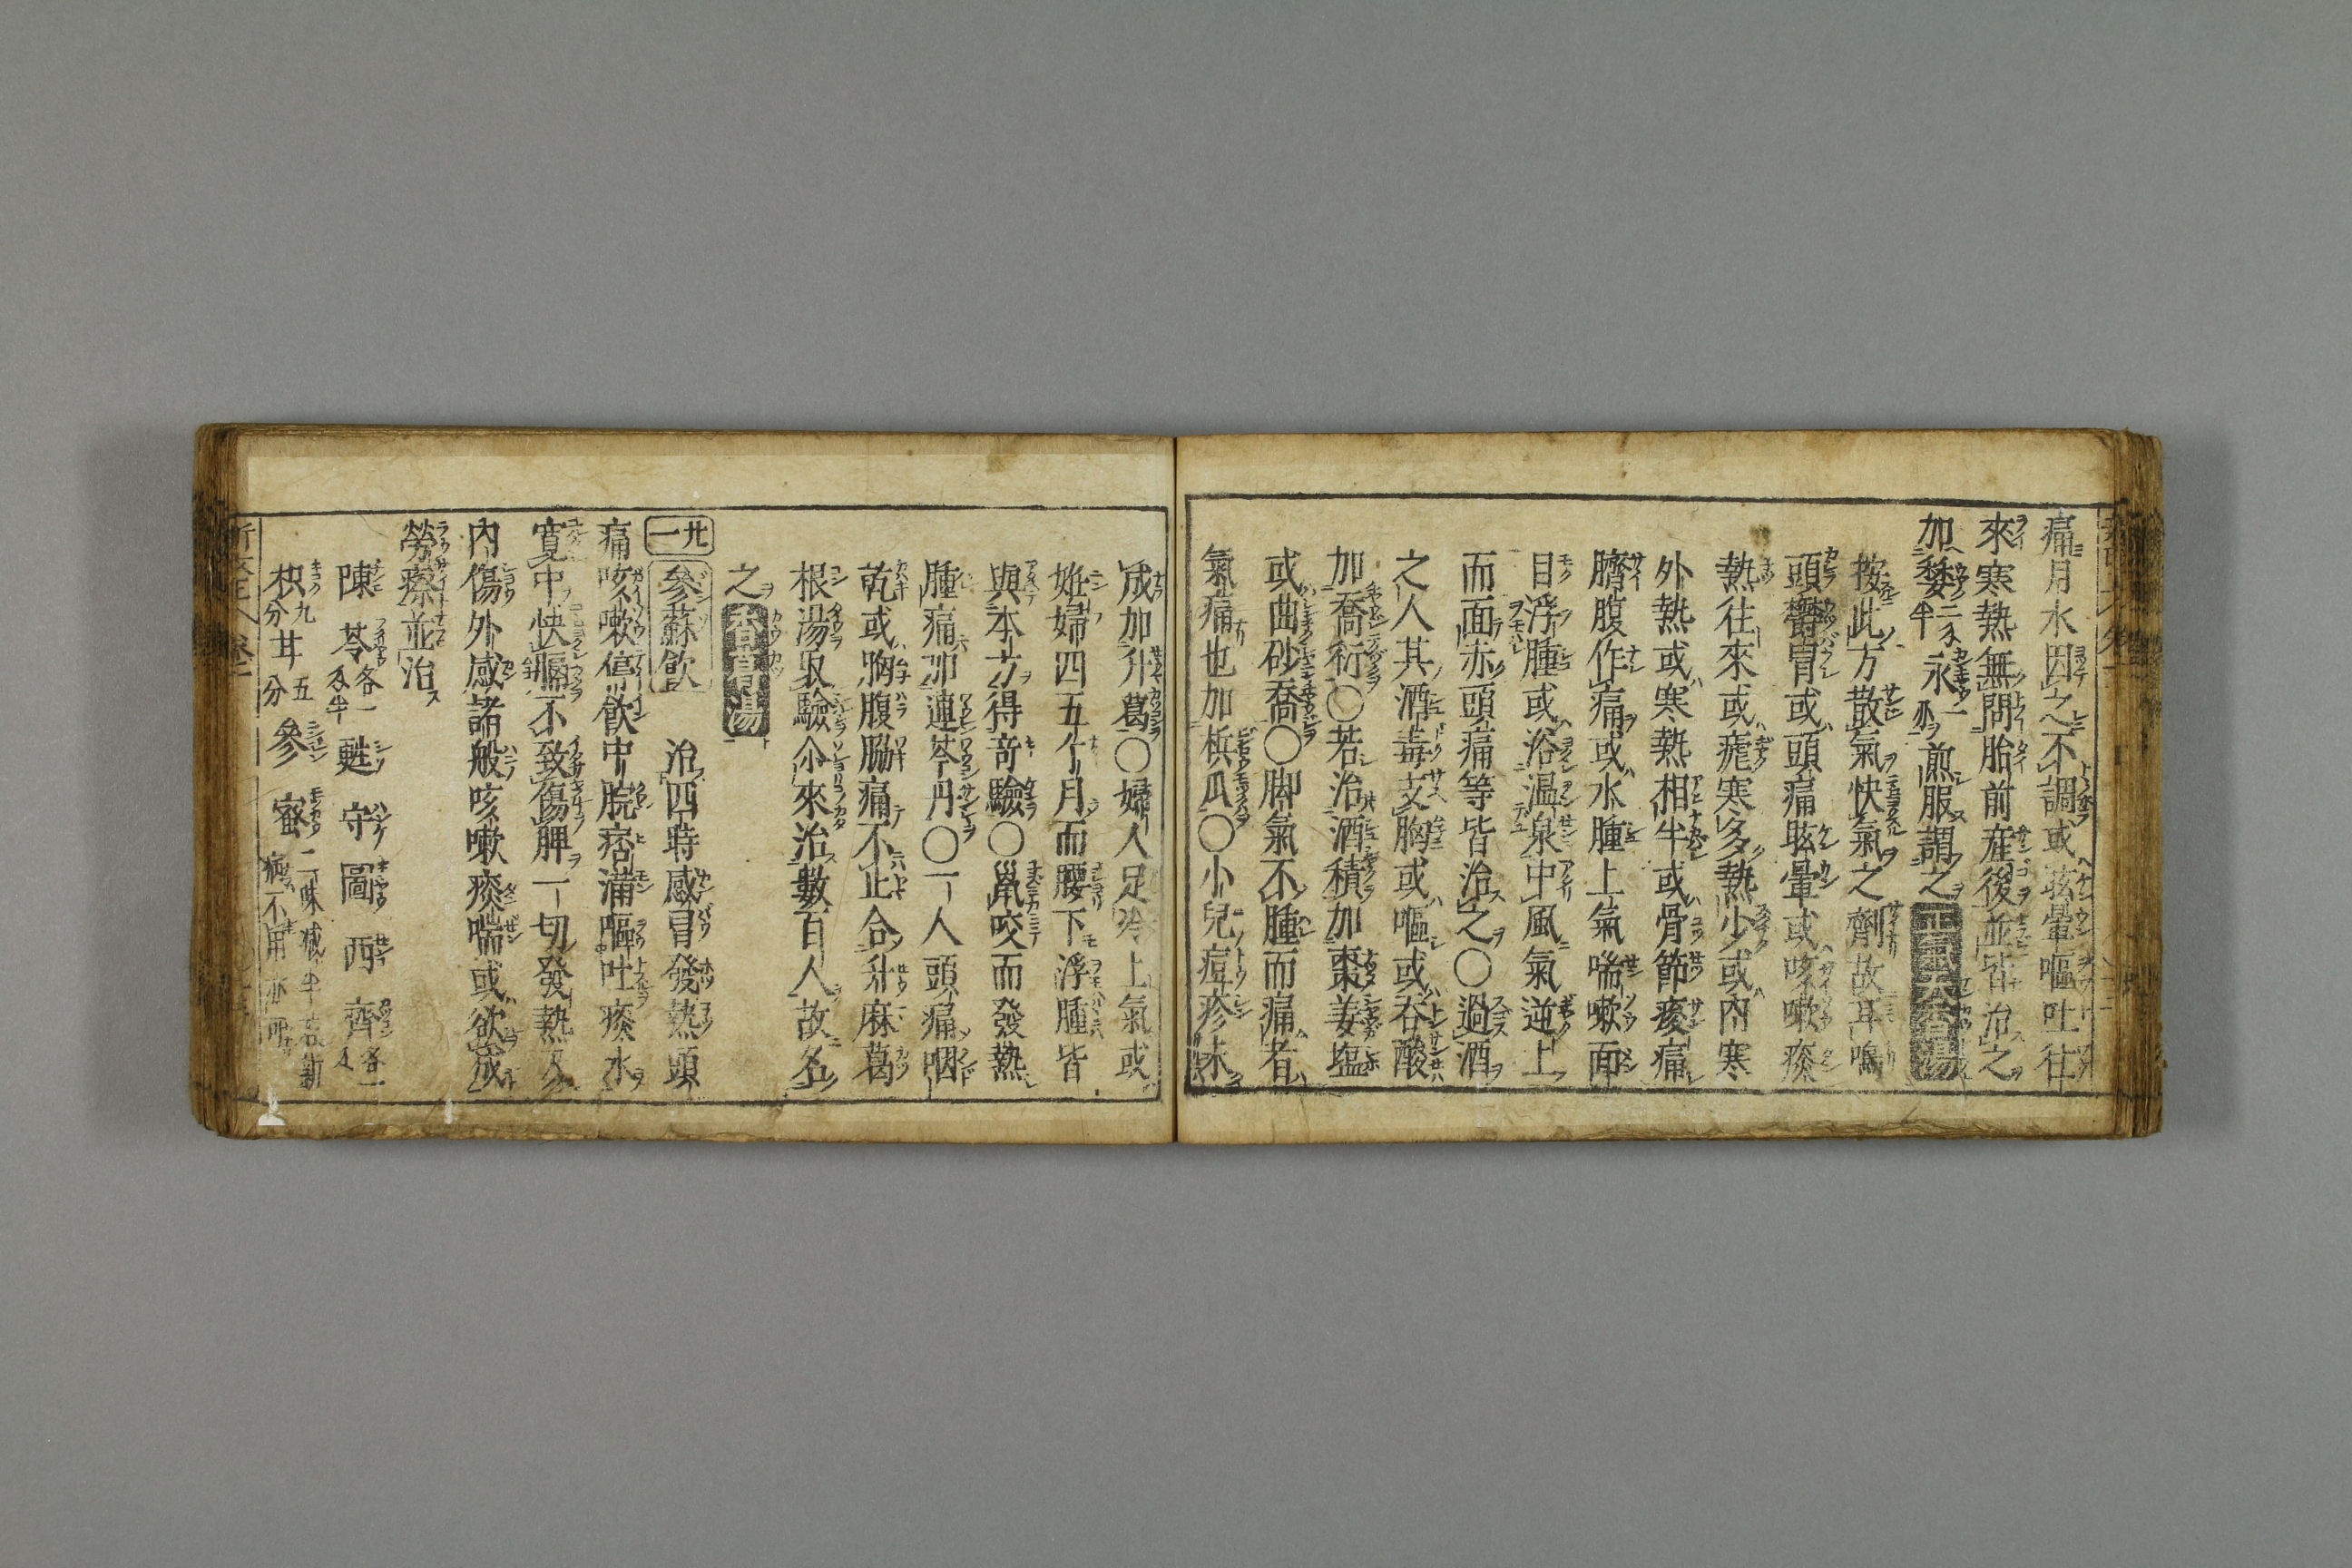 痛月水因之不調或眩暈嘔吐往
來寒熱無問胎前産後並皆治之
加婁二半永一煎服謂之正氣天香湯
按此方散氣快氣之劑故耳鳴
頭鬱冒或頭痛眩暈或咳嗽痰
熱往來或瘧寒多熱少或内寒
外熱或寒熱相半或骨節痠痛
臍腹作痛或水腫上氣喘嗽面
目浮腫或浴温泉中風氣逆上
而面赤頭痛等皆治之〇過酒
之人其酒毒支胸或嘔或吞酸
加喬䄂〇若治酒積加棗姜塩
或曲砂喬〇脚氣不腫而痛者
氣痛也加梹瓜〇小兒痘疹未
成加升葛〇婦人足冷上氣或
姙婦四五个月而腰下浮腫皆
與本方得竒驗〇鼠咬而發熱
腫痛加連芩丹〇一人頭痛咽
乾或胸腹脇痛不止合升麻葛
根湯取驗尒來治數百人故名
之香葛湯
廿一 參蘇飲 治四時感冒發熱頭
痛咳嗽停飲中脘痞滿嘔吐痰水
寛中快膈不致傷脾一切發熱又
内傷外感諸般咳嗽痰喘或欲成
勞瘵並治
陳 苓各一戔半 甦 守 圖 西 齊各一戔
枳九分 甘五分 參 蜜二味減半若新病不用亦可